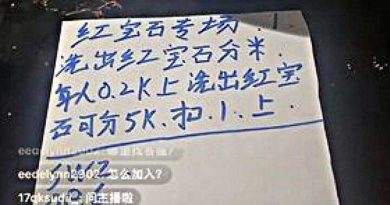 红宝石专场.
洗出红宝石分米.
每人0.2K上洗出红宝
石可分5K.扣.1.上.
eedelynn2902: 怎么加入?
17qksudi: 问主播啦